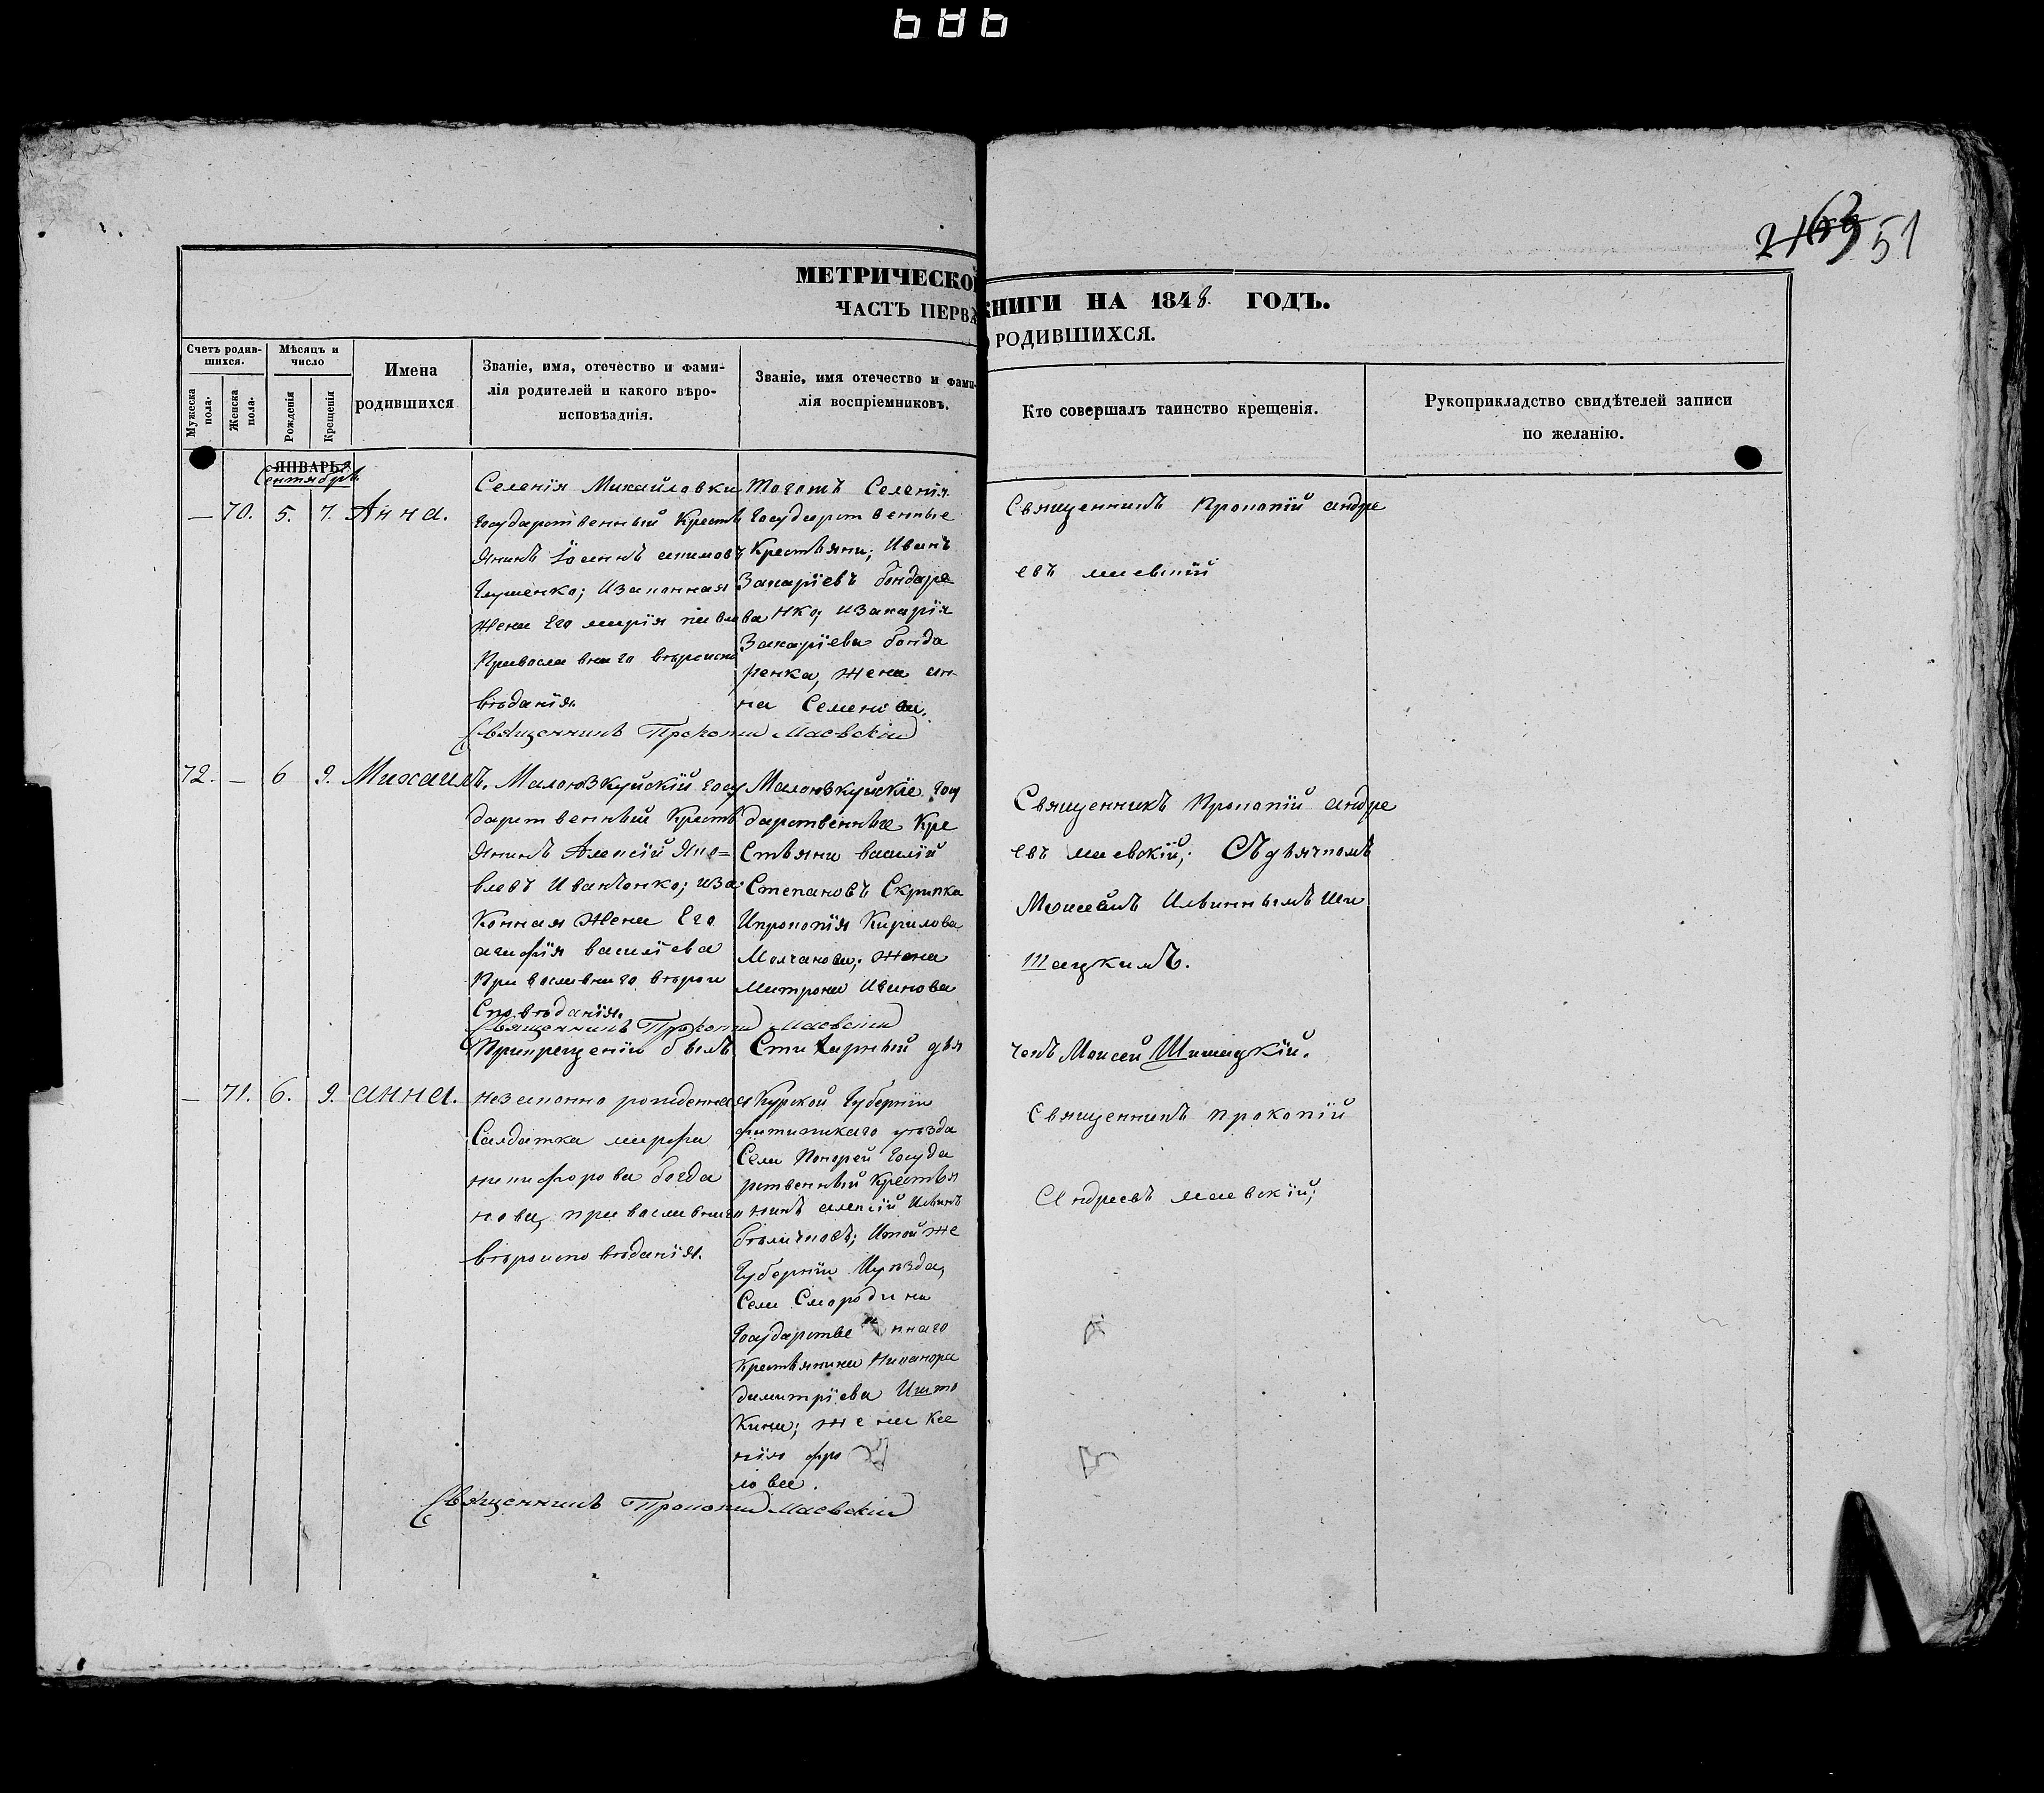 686
2169 51
МЕТРИЧЕСКОЙ КНИГИ НА 1848. ГОДЪ.
ЧАСТЬ ПЕРВА РОДИВШИХСЯ.
Счетъ родив-
шихся.
Мужеска
пола.
Женска
пола.
Мѣсяцъ и
число
Рожденія
Крещенія
Имена
родившихся
Званіе, имя, отечество и фами-
лія родителей и какого вѣро-
исповѣаднія.
Званіе, имя отечество и фами-
лія воспріемниковъ.
Кто совершалъ таинство крещенія.
Рукоприкладство свидѣтелей записи
по желанію.
ЯНВАРЬ
Сентябрь.
— 70. 5. 7. Анна.
Селенія Михайловки
Государственный Кресть
янинъ Іоаннъ
Глушенко; Изаконная
Жена Его Марія
Православнаго вѣроиспо
вѣданія.
Тогожъ Селенія
Государственные
Крестьяни; Иванъ
Захаріевъ бондаре
нко, Изахарія
Захаріева бонда
ренка, жена ан-
на Семенова.
Священникъ Прокопій андре
евъ маевскій
Священникъ Прокопій Маевскій
72. — 6 9. Михаилъ.
Малоюзкуйскій госу
дарственный Кресть
янинъ Алексій Яко=
влевъ Иванченко; иза
конная Жена Его
агафія василіева
Православнаго вѣрои
сповѣданія.
Малоюзкуйскіе госу
дарственные Кре
стьяни василій
Степановъ Скрипка
Ипрокопія Кирилова
Молчанова; жена
Митрона Иванова
Священникъ Прокопій андре
евъ маевскій; Съдьячкомъ
Моисеемъ Ильинымъ Ши
шацкимъ.
Священникъ Прокопій Маевскій
Прикрещеніи былъ Стихарный дья
чекъ Моисей Шишацкій.
— 71. 6. 9. анна.
незаконно рожденная
Салдатка марфа
никифорова богда
нова, православнаго
вѣроисповѣданія.
Курской Губерніи
фатижкаго уѣзда
Села Понорей Госуда
рственный крестья
нинъ алексій Ильинъ
бѣличковъ; Итойже
Губерніи Иуѣзда,
Села Смородина
Государственнаго
Крестьянина Никанора
димитріева
жена Ксе
нія фро
лова.
Священникъ прокопій
Андреевъ маевскій;
Священникъ Прокопій Маевскій